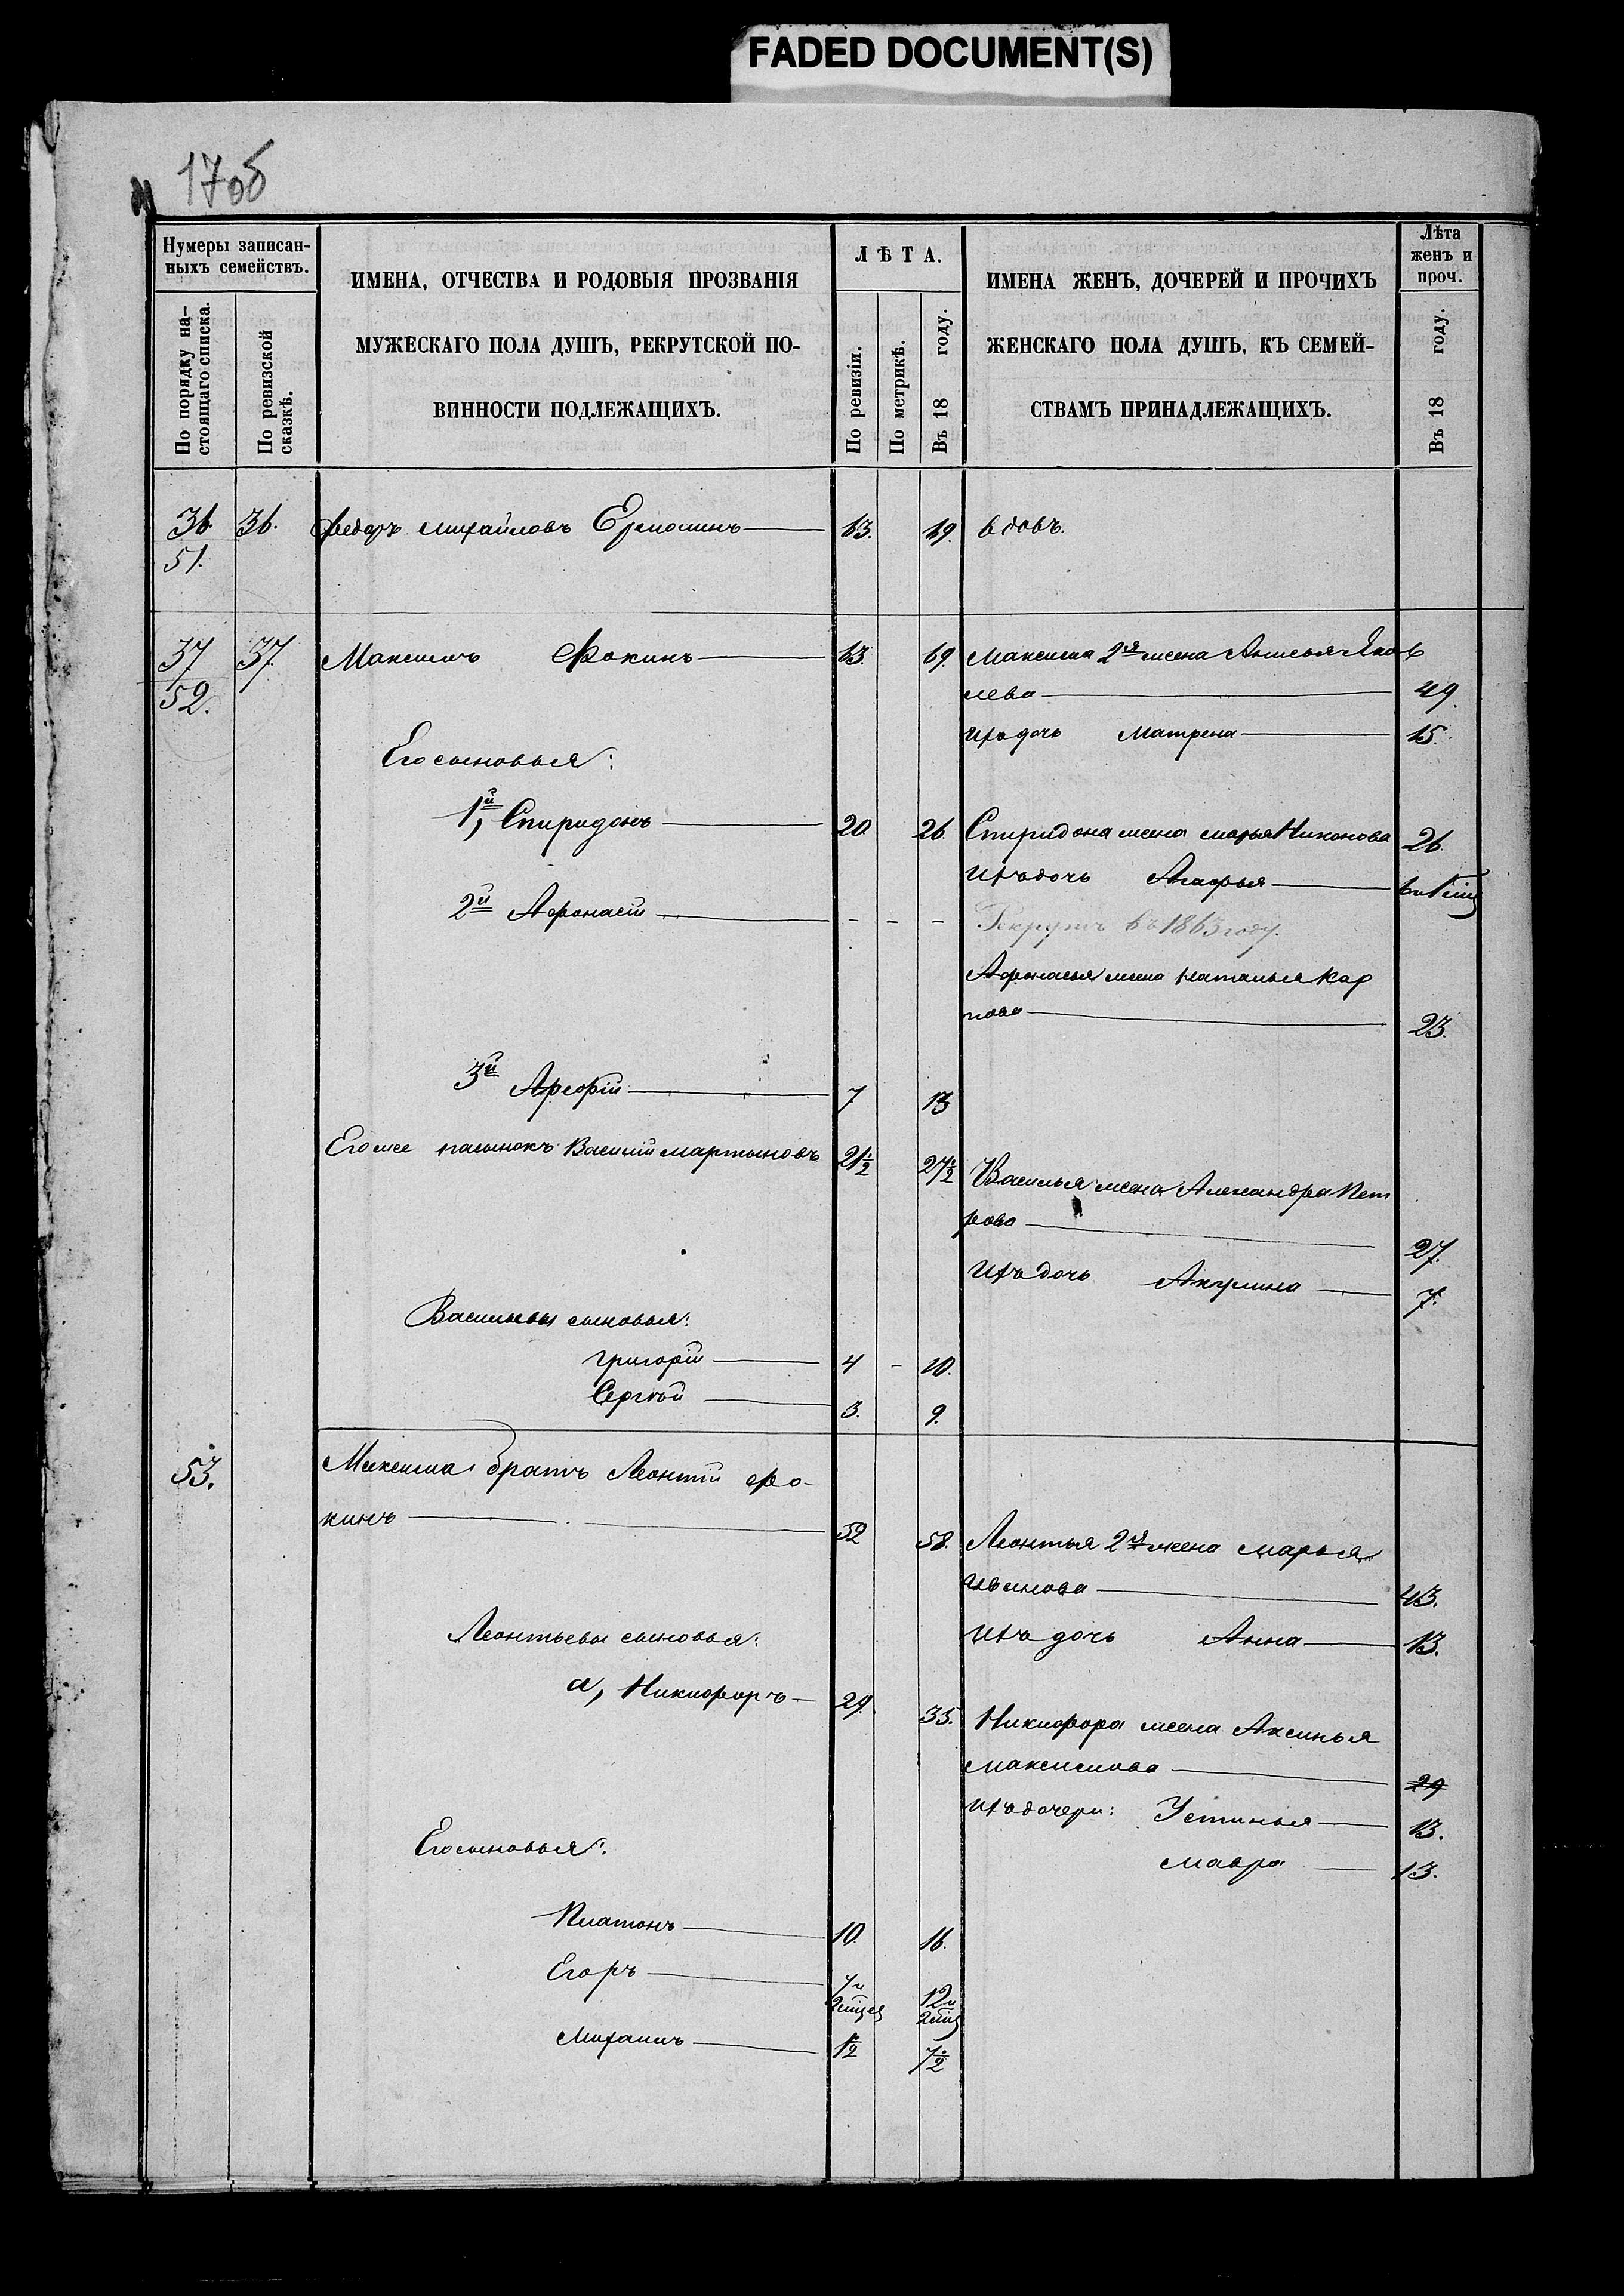 FADED DOCUMENT(S)
17об
Нумеры записан-
ныхъ семействъ.
По порядку на-
стоящаго списка.
По ревизской
сказкѣ.
ИМЕНА, ОТЧЕСТВА И РОДОВЫЯ ПРОЗВАНІЯ
МУЖЕСКАГО ПОЛА ДУШЪ, РЕКРУТСКОЙ ПО-
ВИННОСТИ ПОДЛЕЖАЩИХЪ.
ЛѢТА.
По ревизіи.
По метрикѣ.
Въ 18 году.
ИМЕНА ЖЕНЪ, ДОЧЕРЕЙ И ПРОЧИХЪ
ЖЕНСКАГО ПОЛА ДУШЪ, КЪ СЕМЕЙ-
СТВАМЪ ПРИНАДЛЕЖАЩИХЪ.
Лѣта
женъ и
проч.
Въ 18 году.
36 36. Федоръ Михайловъ Ермошинъ 63. 69. вдовъ.
51.
37 37. Максимъ Фокинъ 63. 69. Максима 2я жена Анисья Яков
52. лева 49.
ихъ дочь Матрена 15.
Его сыновья:
1й, Спиридонъ 20 26. Спиридона жена Марья Никонова 26.
ихъ дочь Агафья
2й Афонасій - - - Рекрутъ въ 1863 году.
Афонасья жена Наталья Кар
пова 23.
3й Арефій 7 13
Его же пасынокъ Василій Мартыновъ 21½ 27½ Василья жена Александра Пет
рова 27.
ихъ дочь Акулина 7.
Васильевы сыновья:
Григорій 4 - 10.
Сергѣй 3. 9.
53. Максима братъ Леонтій Фо-
кинъ 52 58. Леонтья 2я жена Марья
Иванова 43.
Леонтьевы сыновья: ихъ дочь Анна 13.
а, Никифоръ 29. 35. Никифора жена Аксинья
Максимова 29
ихъ дочери: Устинья 13.
Его сыновья: Мавра 13.
Платонъ 10. 16.
Егоръ 7 и 12 и
2 міся 2 міс
Михаилъ 1½ 7½